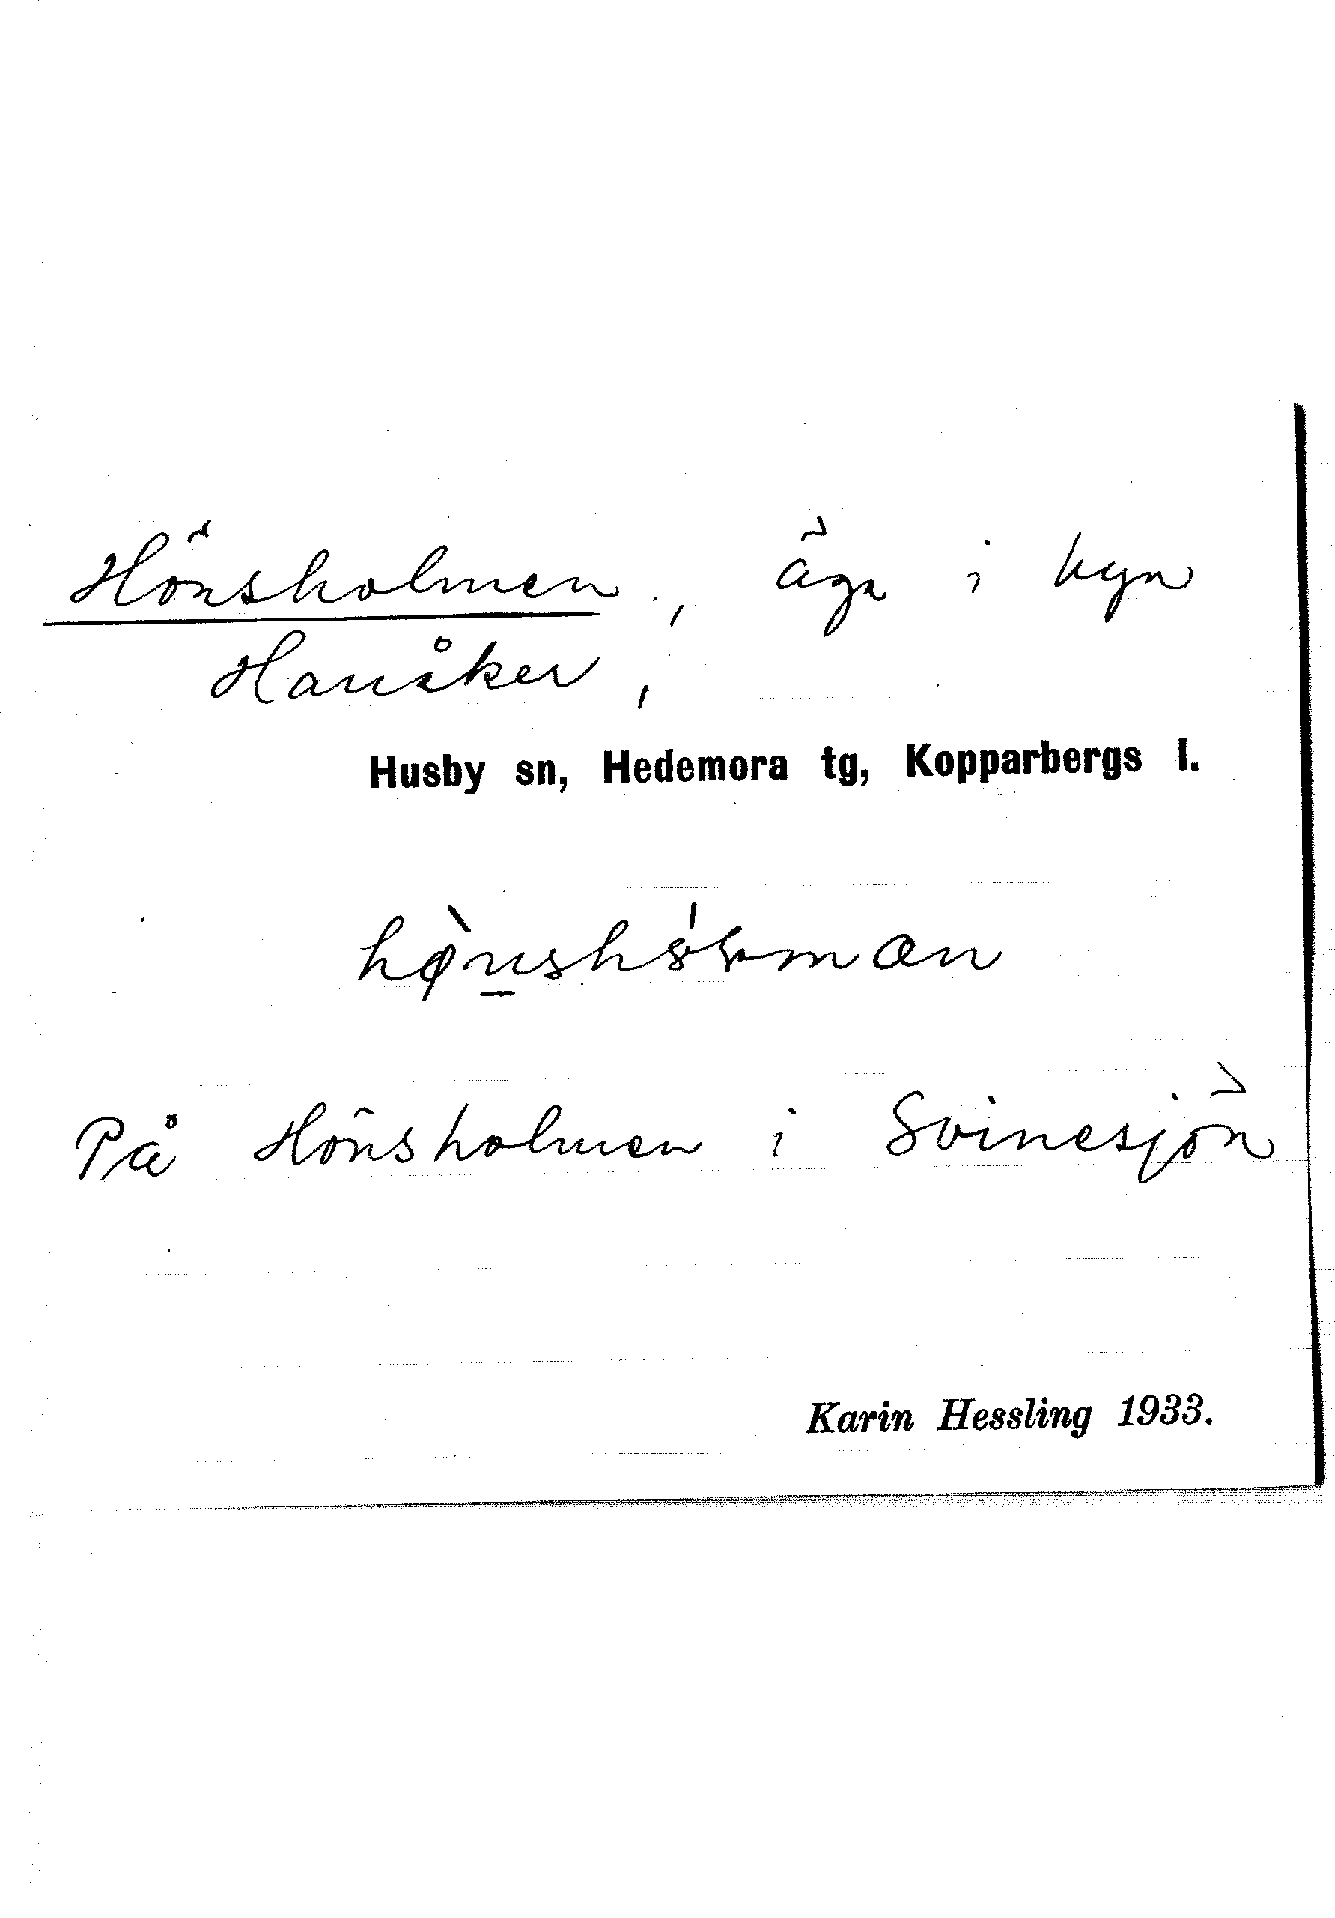 Hönsholmen, äga i byn
Hanåker,
Husby sn, Hedemora tg, Kopparbergs l.
På Hönsholmen i Svinesjön
Karin Hessling 1933.